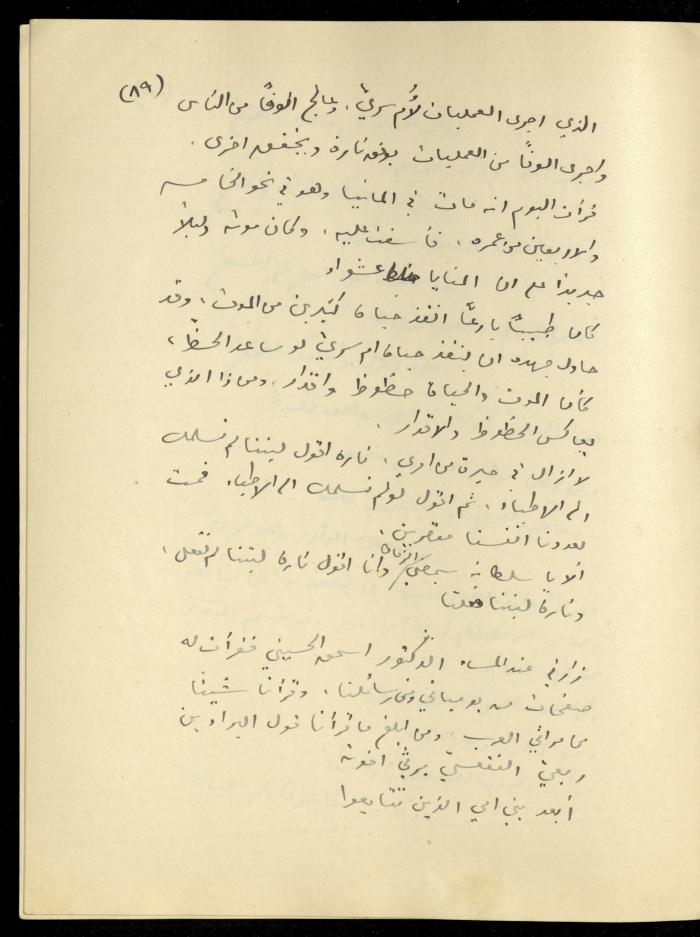 (٨٩)
الذي اجرى العمليات لأم سري، وعالج الوفًا من الناس
واجرى الوفًا من العمليات يوفق تارة ويخفق اخرى.
قرأت اليوم انه مات في المانيا وهو في نحو الخامسة
والاربعين من عمره، فأسفت عليه، وكان موته دليلاً
جديدًا على ان المنايا خبط عشواء
كان طبيبًا بارعًا انقذ حياة كثيرين من الموت، وقد
حاول جهده ان ينقذ حياة ام سري لو ساعد الحظ،
كأن الموت والحياة حظوظ واقدار، ومن ذا الذي
يعاكس الحظوظ والاقدار.
لا ازال في حيرة من امري، تارة اقول ليتنا لم نسلمك
الى الاطباء، ثم اقول لو لم نسلمك الى الاطباء فمت
لعددنا انفسنا مقصرين.
ألا يا سلطانه سيمضي الزمان وأنا اقول تارة ليتنا لم نفعل،
وتارة ليتنا فعلنا
زارني عند المساء الدكتور اسحق الحسيني فقرأت له
صفحات من يومياتي ومن رسائلنا، وقرأنا شيئًا
من مراثي العرب، ومن ابلغ ما قرأنا قول البراء بن
ربعي الفقعسي يرثي اخوته
أبعد بني امي الذين تتابعوا